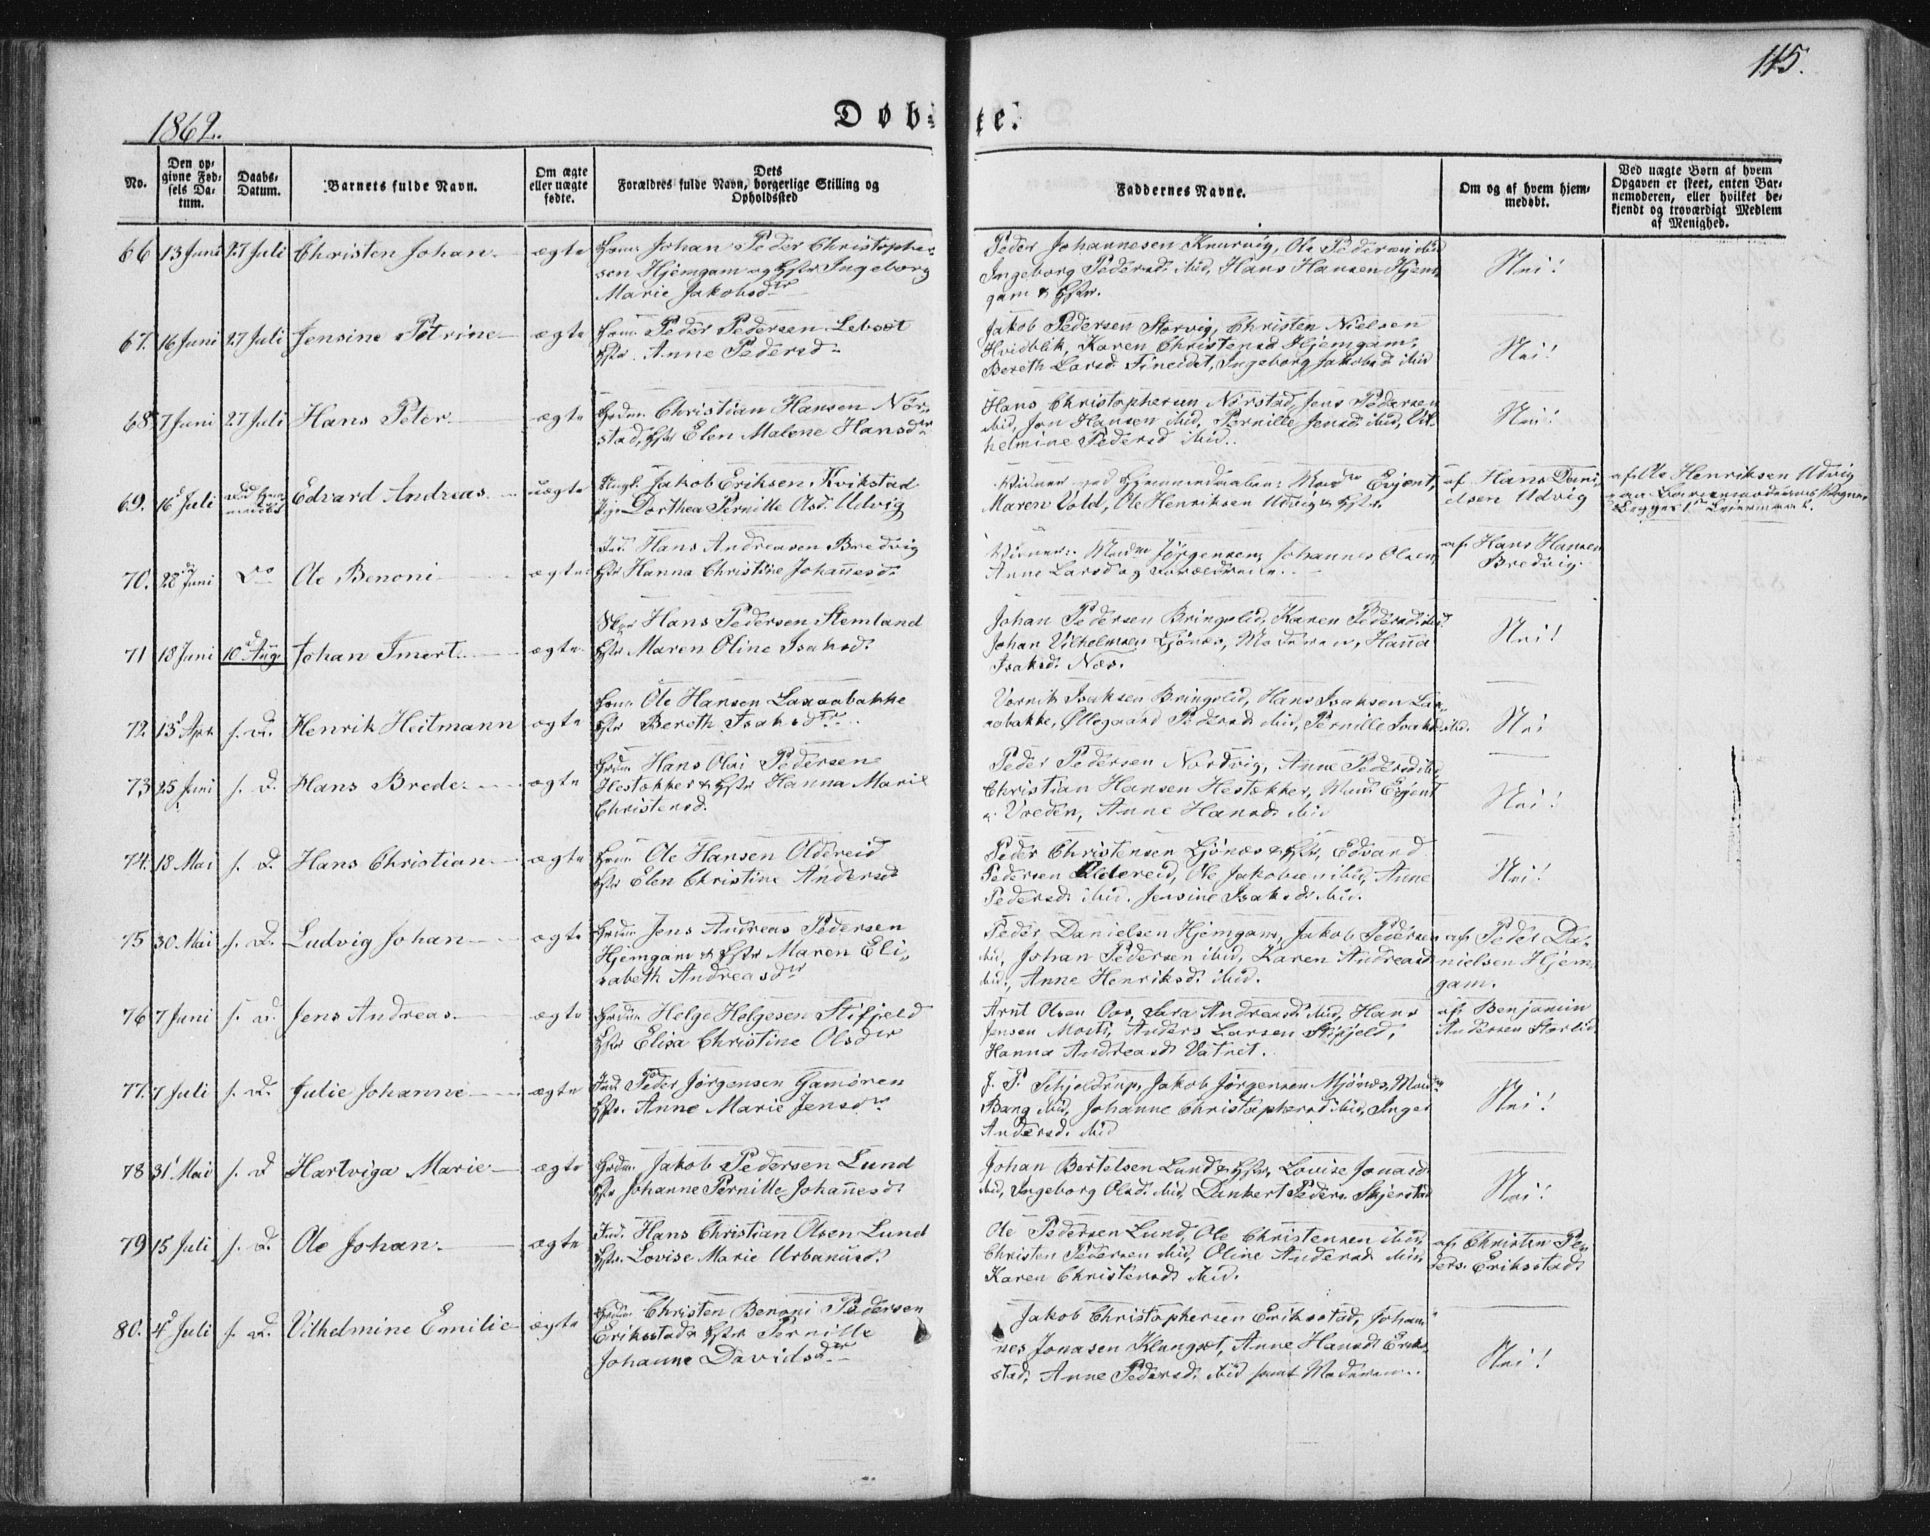 115.
1862.
Døbte.
No.
Den opgivne Fødsels Datum.
Daabs-Datum.
Barnets fulde Navn.
Om ægte eller uægte fødte.
Dets Forældres fulde Navn, borgerlige Stilling og Opholdssted
Faddernes Navne.
Om og af hvem hjemmedøbt.
Ved uægte Børn af hvem Opgaven er skeet, enten Barnemoderen, eller hvilket bekjendt og troværdigt Medlem af Menighed.
66 13 Juni 27 Juli Christen Johan ægte
Johan Peder Christophe-
sen Hjemgam og Hstr Ingeborg
Marie Jakobsdtr
Peder Johannesen Knurvig, Ole Pedersen ibid
Ingeborg Pedersd. ibid, Hans Hansen Hjem-
gam & Hstr.
Nei!
67. 16 Juni 27 Juli Jensine Petrine ægte
Peder Pedersen Lebsøt
Hstr. Anne Pedersd.
Jakob Pedersen Storvig, Christen Nielsen
Hvidblik, Karen Christensd Hjemgam,
Bereth Larsd. Fineidet, Ingeborg Jakobsd ibid
Nei!
68. 7 Juni 27 Juli Hans Peter ægte
Christian Hansen Nør-
stad, Hstr Elen Malene Hansdtr
Hans Christophersen Nørstad, Jens Pedersen
ibid, Jon Hansen ibid, Pernille Jensd. ibid, Vil-
helmine Pedersd ibid.
Nei!
69. 16 Juli Edvard Andreas uægte
Ungk. Jakob Eriksen Kvikstad
Pige Dorthea Pernille Olsd. Udvig
Maren Vold, Ole Henriksen Udvig & Hstr.
af Hans Dani-
elsen Udvig
af Ole Henriksen Udvig
70. 22 Juni Do Ole Benoni ægte
Ind. Hans Andreasen Bredvig
Hstr Hanna Christine Johannesd.
Madm Jørgensen, Johannes Olsen,
Anne Larsd og Forældrene.
af Hans Hansen
Bredvig.
71 18 Juni 10 Aug. Johan Imert ægte
Hans Pedersen Stemland
Hstr Maren Oline Isaksd.
Johan Pedersen Bringslid, Karen Pedersd. ibid
Johan Vilhelmsen Ljønes, Moderen, Hanna
Isaksd. Næs.
Nei!
72. 13 Apr. s. D. Henrik Heitmann ægte
Ole Hansen Laxaabakke
Hstr Bereth Isaksdtr
Isaksen Bringslid, Hans Isaksen Lax-
aabakke, Ollegaard Pedersd ibid, Pernille Isaksd ibid.
Nei
73 25 Juni s. D. Hans Brede ægte
Hans Olai Pedersen
Hestækker & Hstr Hanna Marie
Christensd.
Peder Pedersen Nordvig, Anne Pedersd ibid,
Christian Hansen Hestækker, Madm Eigent
Anne Hansd. ibid
Nei!
74. 18 Mai s. D. Hans Christian ægte
Ole Hansen Oldereid
Hstr Elen Christine Andersd
Peder Christensen Ljønæs & Hstr, Edvard
Pedersen Oldereid, Ole Jakobsen ibid, Anne
Pedersd. ibid. Jensine Isaksd. ibid.
Nei!
75 30. Mai s. D. Ludvig Johan ægte
Jens Andreas Pedersen
Hjemgam & Hstr Maren Eli-
sabeth Andreasdtr
Peder Danielsen Hjemgam, Jakob Pedersen
ibid, Johan Pedersen ibid, Karen Andreasd
ibid, Anne Henriksd. ibid.
af Peder Da-
nielsen Hjem-
gam.
76 7 Juni s. D. Jens Andreas ægte
Helge Helgesen Stifjeld
Hstr Elisa Christine Olsdtr
Arnt Olsen Oos, Sara Andreasd. ibid, Hans
Jensen Mosti, Anders Larsen Stifjeld,
Hanna Andreasd. Vatnet.
af Benjamin
Andersen Storlid
77. 7 Juli s. D. Julie Johanne ægte
Ind. Peder Jørgensen Gamøren
Hstr. Anne Marie Jensdtr
J. P. Schjeldrup, Jakob Jørgensen Mjønæs, Madm
Bang ibid, Johanne Christophersd ibid, Inger
Andersd. ibid
Nei!
78 31 Mai s. D Hartviga Marie ægte
Jakob Pedersen Lund
Hstr Johanne Pernille Johannesd.
Johan Bertelsen Lund & Hstr, Lovise Jonasd.
ibid, Ingeborg Olsd. ibid, Dankert Peders. Skjerstad
Nei!
79 15 Juli s. D. Ole Johan ægte
Ind. Hans Christian Olsen Lund
Hstr. Lovise Marie Urbanusd.
Ole Pedersen Lund, Ole Christensen ibid,
Christen Pedersen ibid, Oline Andersd ibid,
Karen Christensd. ibid.
af Christen Pe-
ders. Eriksstad
80. 4 Juli s. D. Vilhelmine Emilie ægte
Christen Benoni Pedersen
Eriksstad & Hstr Pernille
Johanne Davidsdtr
Jakob Christophersen Eriksstad, Johan-
nes Jonasen Klungset, Anne Hansd. Eriks-
stad, Anne Pedersd. ibid samt Moderen.
Nei!